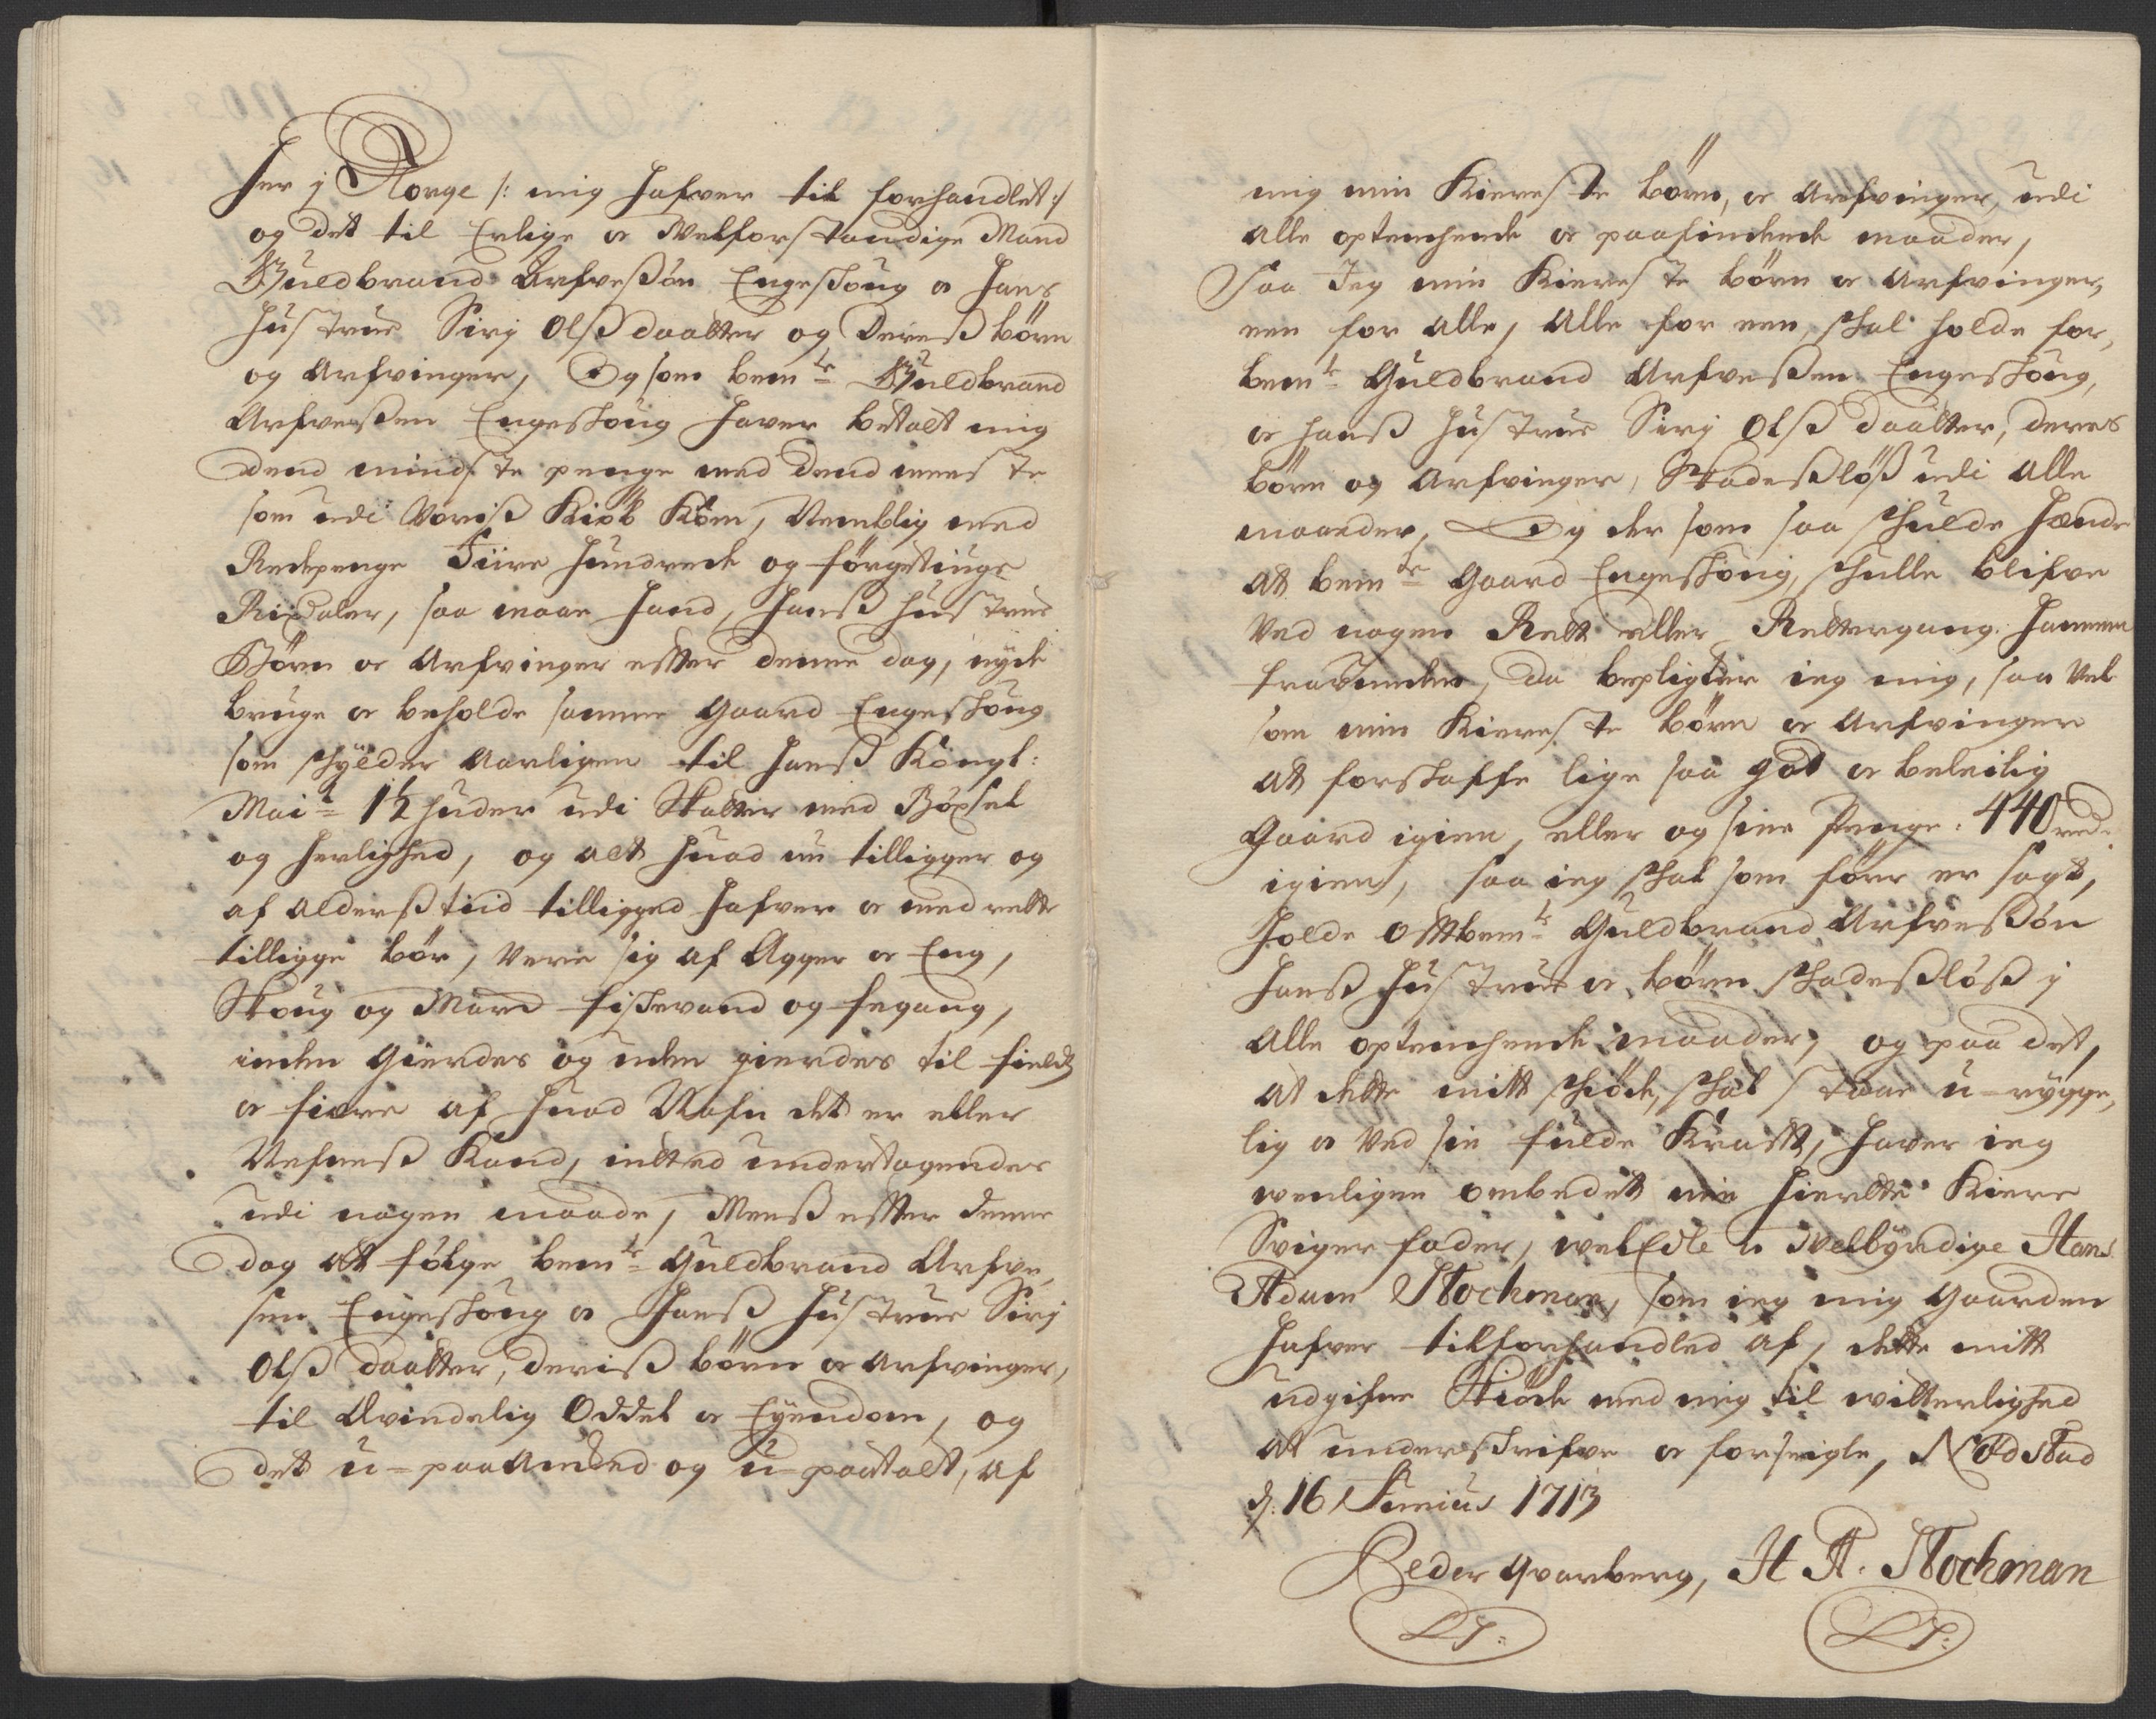 her j Norge /: mig hafver til forhandlet :/
og det til Erlige oc Velforstandige Mand
Guldbrand Arfveßön Engeschoug oc hans
hustrue Sirj Olsdaatter og Dereß börn
og Arfvinger, Og som bemte Guldbrand
Arfveßen Engeschoug haver betalt mig
dend mindste penge med dend meeste
som udi Voriß Kiöb Kom, Nemblig med
Redepenge Fiire hundrede og förgetiuge
Rixdaler, saa maae hand, hanß hustrue
Börn oc Arfvinger efter denne dag, nyde
bruge oc beholde samme Gaard Engeschoug
som schylder Aarligen til Hanß Kongl:
Maits 1½ huder udi Skatter med Böxsel
og herlighed, og alt huad nu tilligger og
af alderßtiid tilligged hafver oc med rette
tilligge bör, Være sig af Agger oc Eng,
Skoug og Marck fiskevand og fegang,
inden gierdes og uden gierdes til fields
oc fiære af huad Nafn det er eller
Nefneß Kand, indted undertagendes
udi nogen maade, Menß efter denne
dag at fölge bemte Guldbrand Arfve¬
sen Engeschoug oc Hanß Hustrue Sirj
Olß daatter, deriß börn oc arfvinger,
til Ævindelig Oddel oc Eyendom, og
det u-paaancked og u-paatalt, af
mig min Kiereste börn, oc Arfvinger, udi
alle optenchende oc paafindende maader,
Saa Jeg min Kiereste börn oc Arfvinger,
een for alle, alle for een, schal holde for,
bemte Guldbrand Arfveßen Engeschoug,
oc hanß hustrue Sirj Olß daatter, deres
börn og Arfvinger, Skadeßlöß udi alle
maader, Og der som saa schulde hænde
at bemte Gaard Engeschoug, schulle blifve
Ved nogen Rett eller Rettergang hannem
fravunden, da bepligter ieg mig, saa vel
som min Kiereste börn oc Arfvinger
at forschaffe lige saa god oc beleilig
Gaard igien, eller og sine Penge: 440 rd:
igien, saa ieg schal som förr er sagt,
holde oftbemte Guldbrand Arfveßön
hanß hustrue oc börn schadeßlöß j
alle optenchende maader, og paa det,
at dette mitt schiöde, schal staae u-rygge,
lig oc Ved sin fulde Krafft, haver ieg
venligen ombedet min hierte Kiere
Sviger fader, velEdle oc Velbyrdige Hans
Adam Stochman, som ieg mig gaarden
hafver tilforhandled af, dette mitt
udgifne Skiöde med mig til vitterlighed
at underschrifve oc forseigle, Nödstad
d: 16 Junius 1713
Peder Qvarberg, H A. Stochman
LS: LS: